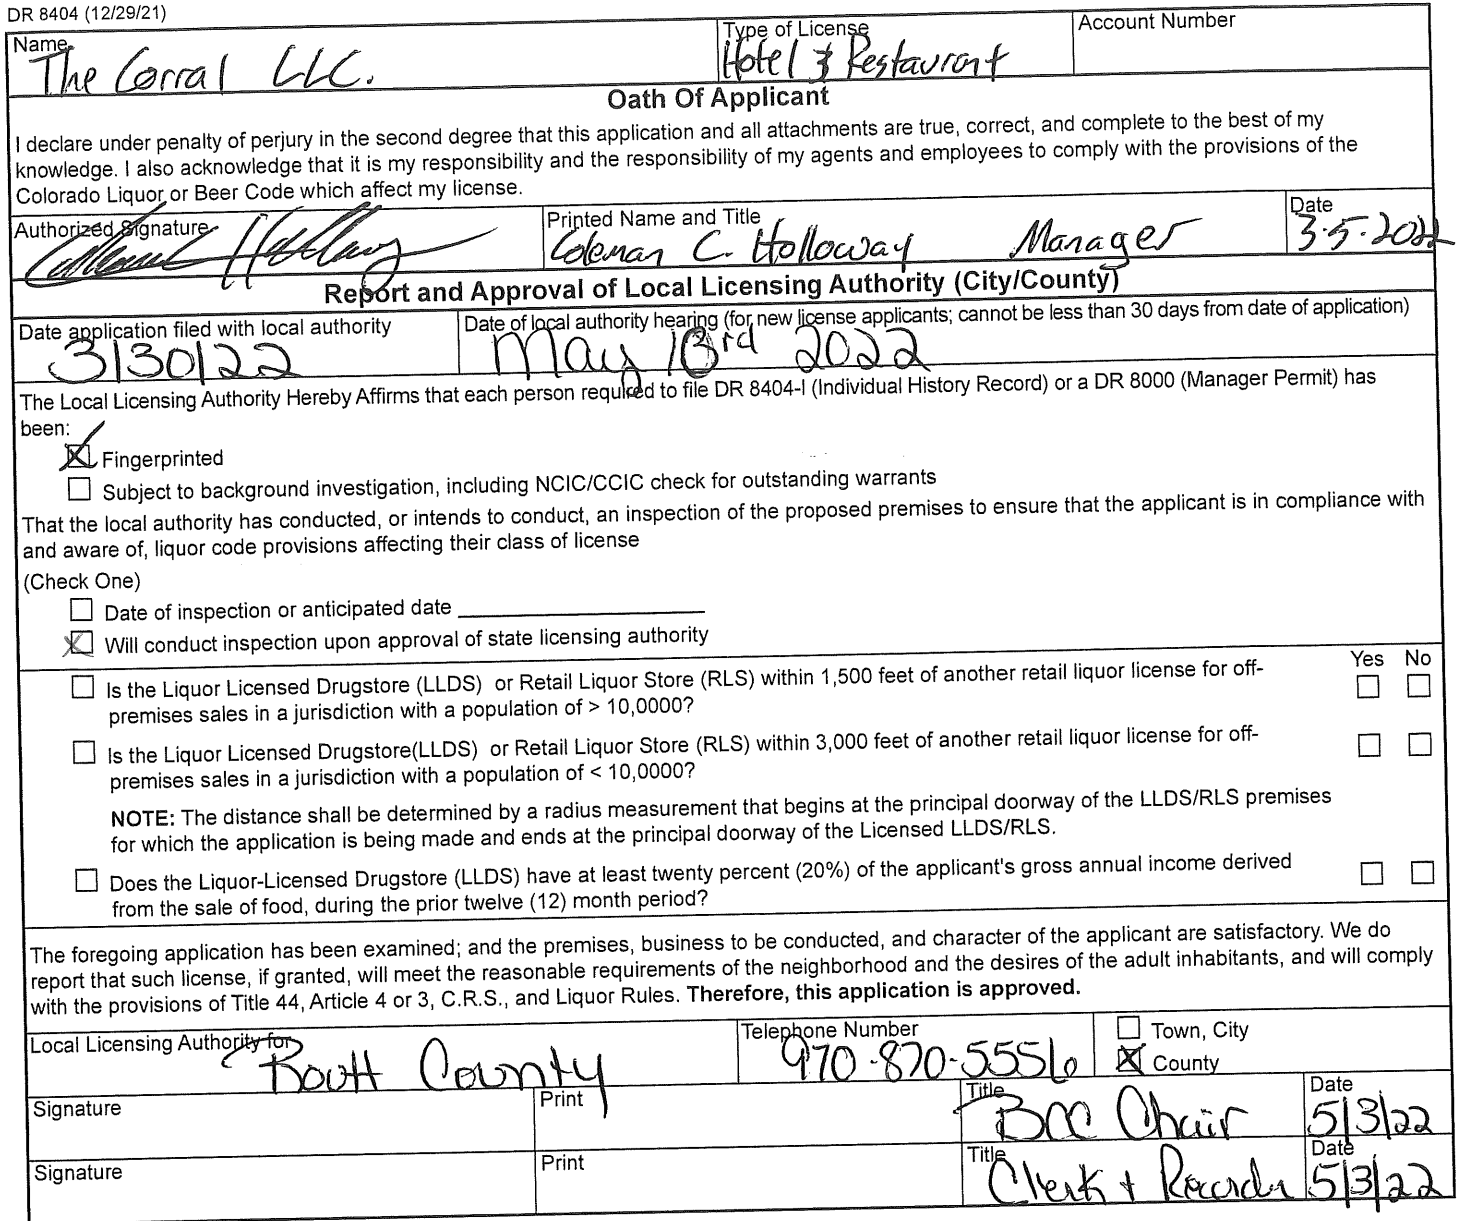 DR 8404 (12/29/21)
Name
The Corral LLC.
Type of License
Hotel & Restaurant
Account Number
Oath Of Applicant
I declare under penalty of perjury in the second degree that this application and all attachments are true, correct, and complete to the best of my
knowledge. I also acknowledge that it is my responsibility and the responsibility of my agents and employees to comply with the provisions of the
Colorado Liquor or Beer Code which affect my license.
Authorized Signature
Printed Name and Title
Coleman C. Holloway Manager
Date
3-5-2022
Report and Approval of Local Licensing Authority (City/County)
Date application filed with local authority
3|30|22
Date of local authority hearing (for new license applicants; cannot be less than 30 days from date of application)
May 3rd 2022
The Local Licensing Authority Hereby Affirms that each person required to file DR 8404-I (Individual History Record) or a DR 8000 (Manager Permit) has
been:
Fingerprinted
Subject to background investigation, including NCIC/CCIC check for outstanding warrants
That the local authority has conducted, or intends to conduct, an inspection of the proposed premises to ensure that the applicant is in compliance with
and aware of, liquor code provisions affecting their class of license
(Check One)
Date of inspection or anticipated date
Will conduct inspection upon approval of state licensing authority
Yes No
Is the Liquor Licensed Drugstore (LLDS) or Retail Liquor Store (RLS) within 1,500 feet of another retail liquor license for off-
premises sales in a jurisdiction with a population of > 10,0000?
Is the Liquor Licensed Drugstore(LLDS) or Retail Liquor Store (RLS) within 3,000 feet of another retail liquor license for off-
premises sales in a jurisdiction with a population of < 10,0000?
NOTE: The distance shall be determined by a radius measurement that begins at the principal doorway of the LLDS/RLS premises
for which the application is being made and ends at the principal doorway of the Licensed LLDS/RLS.
Does the Liquor-Licensed Drugstore (LLDS) have at least twenty percent (20%) of the applicant's gross annual income derived
from the sale of food, during the prior twelve (12) month period?
The foregoing application has been examined; and the premises, business to be conducted, and character of the applicant are satisfactory. We do
report that such license, if granted, will meet the reasonable requirements of the neighborhood and the desires of the adult inhabitants, and will comply
with the provisions of Title 44, Article 4 or 3, C.R.S., and Liquor Rules. Therefore, this application is approved.
Local Licensing Authority for
Routt County
Telephone Number
970-870-5556
Town, City
County
Signature
Print
Title
BCC Chair
Date
5|3|22
Signature
Print
Title
Clerk + Recorder
Date
5|3|22